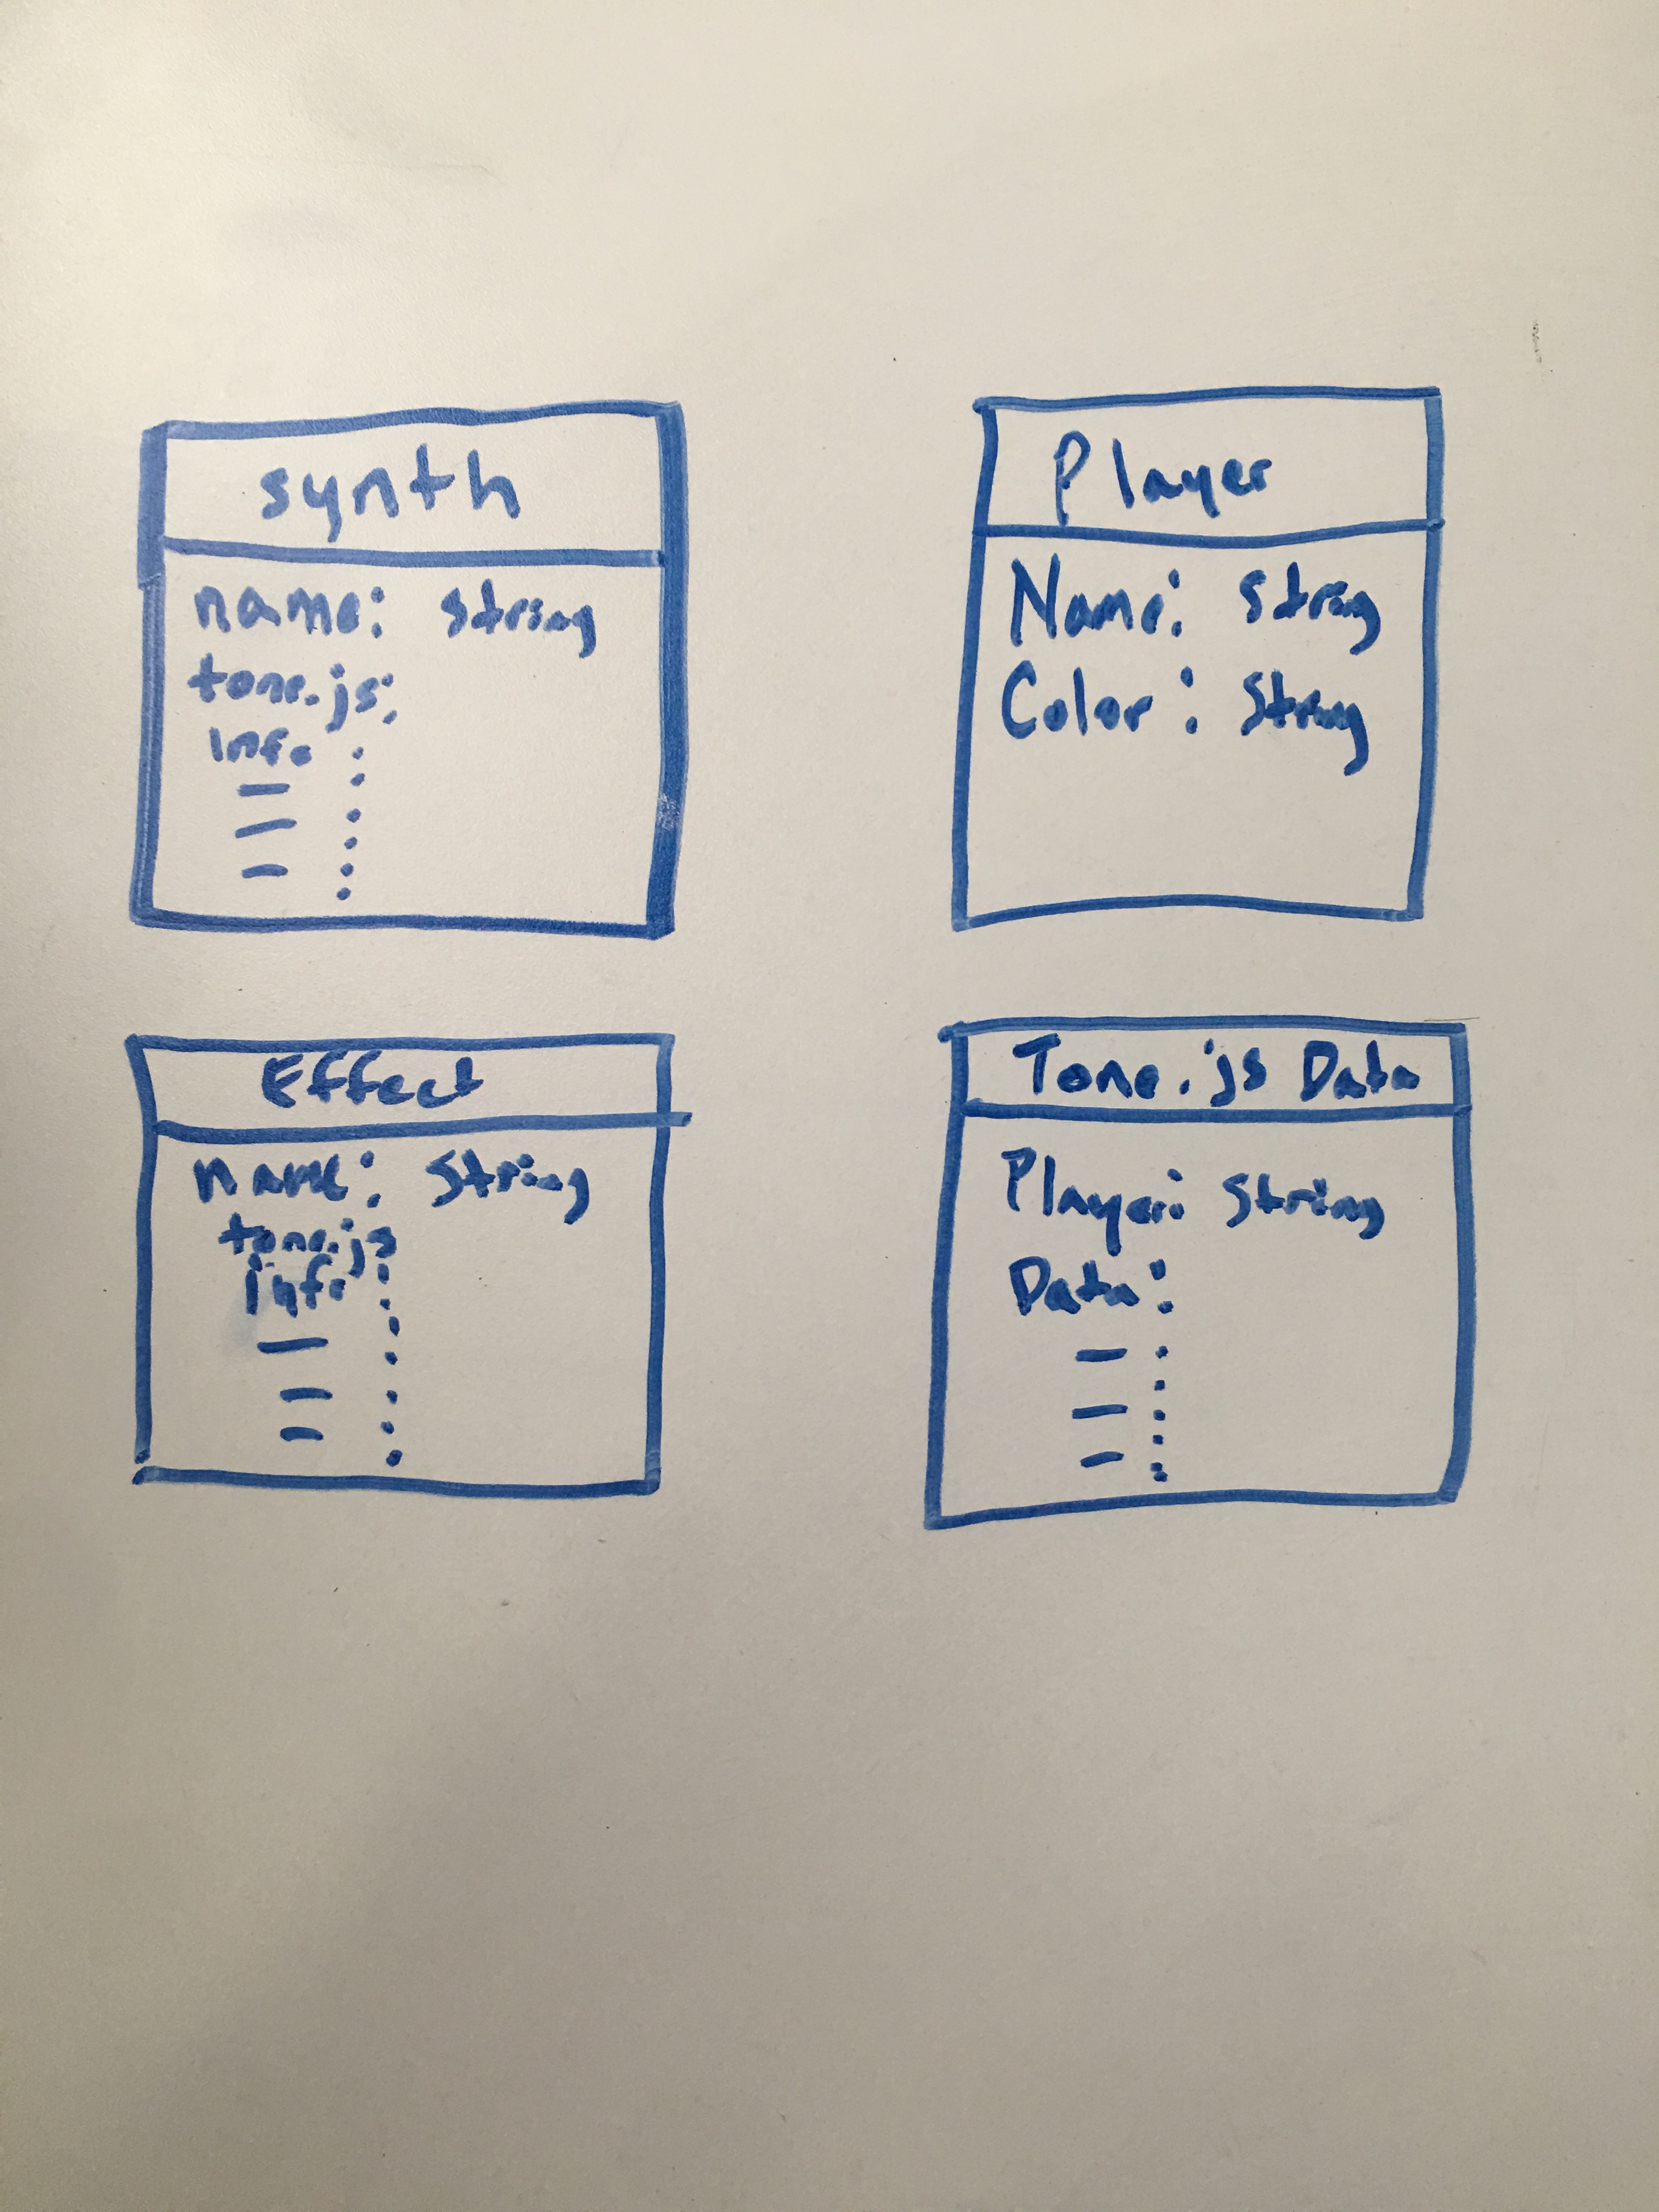 synth
name: String
tone.js:
info :
— :
— :
— :
Player
Name: String
Color: String
Effect
name: String
tone.js
info :
— :
— :
— :
Tone.js Data
Player: String
Data:
— :
— :
— :